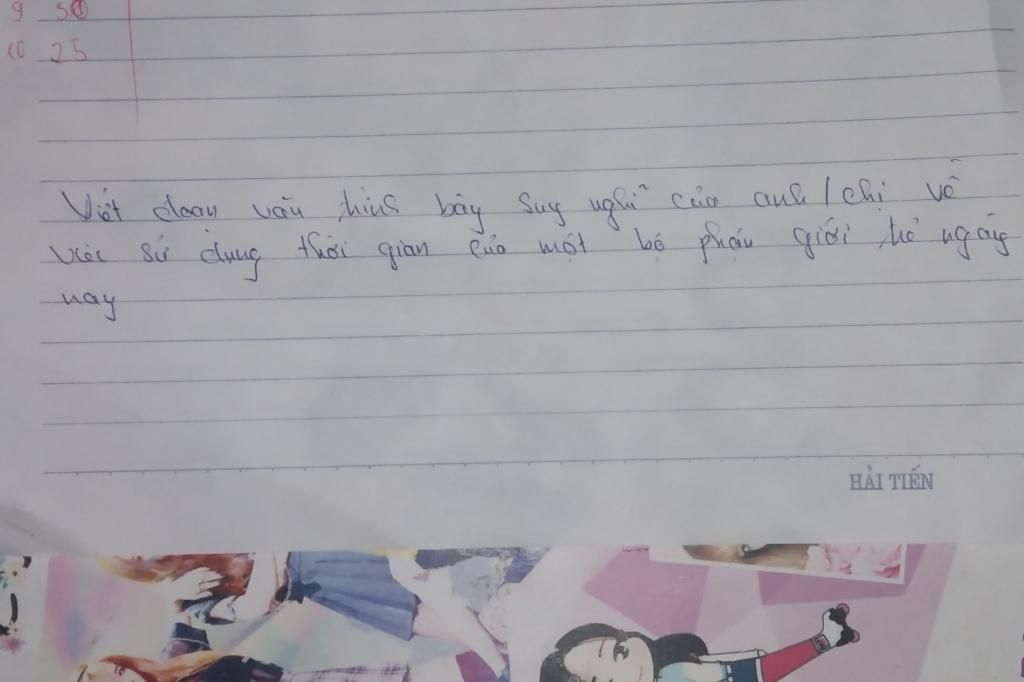 9 50
10 25
Viết đoạn văn trình bày suy nghĩ của anh/chị về
việc sử dụng thời gian của một bộ phận giới trẻ ngày
nay
HẢI TIẾN